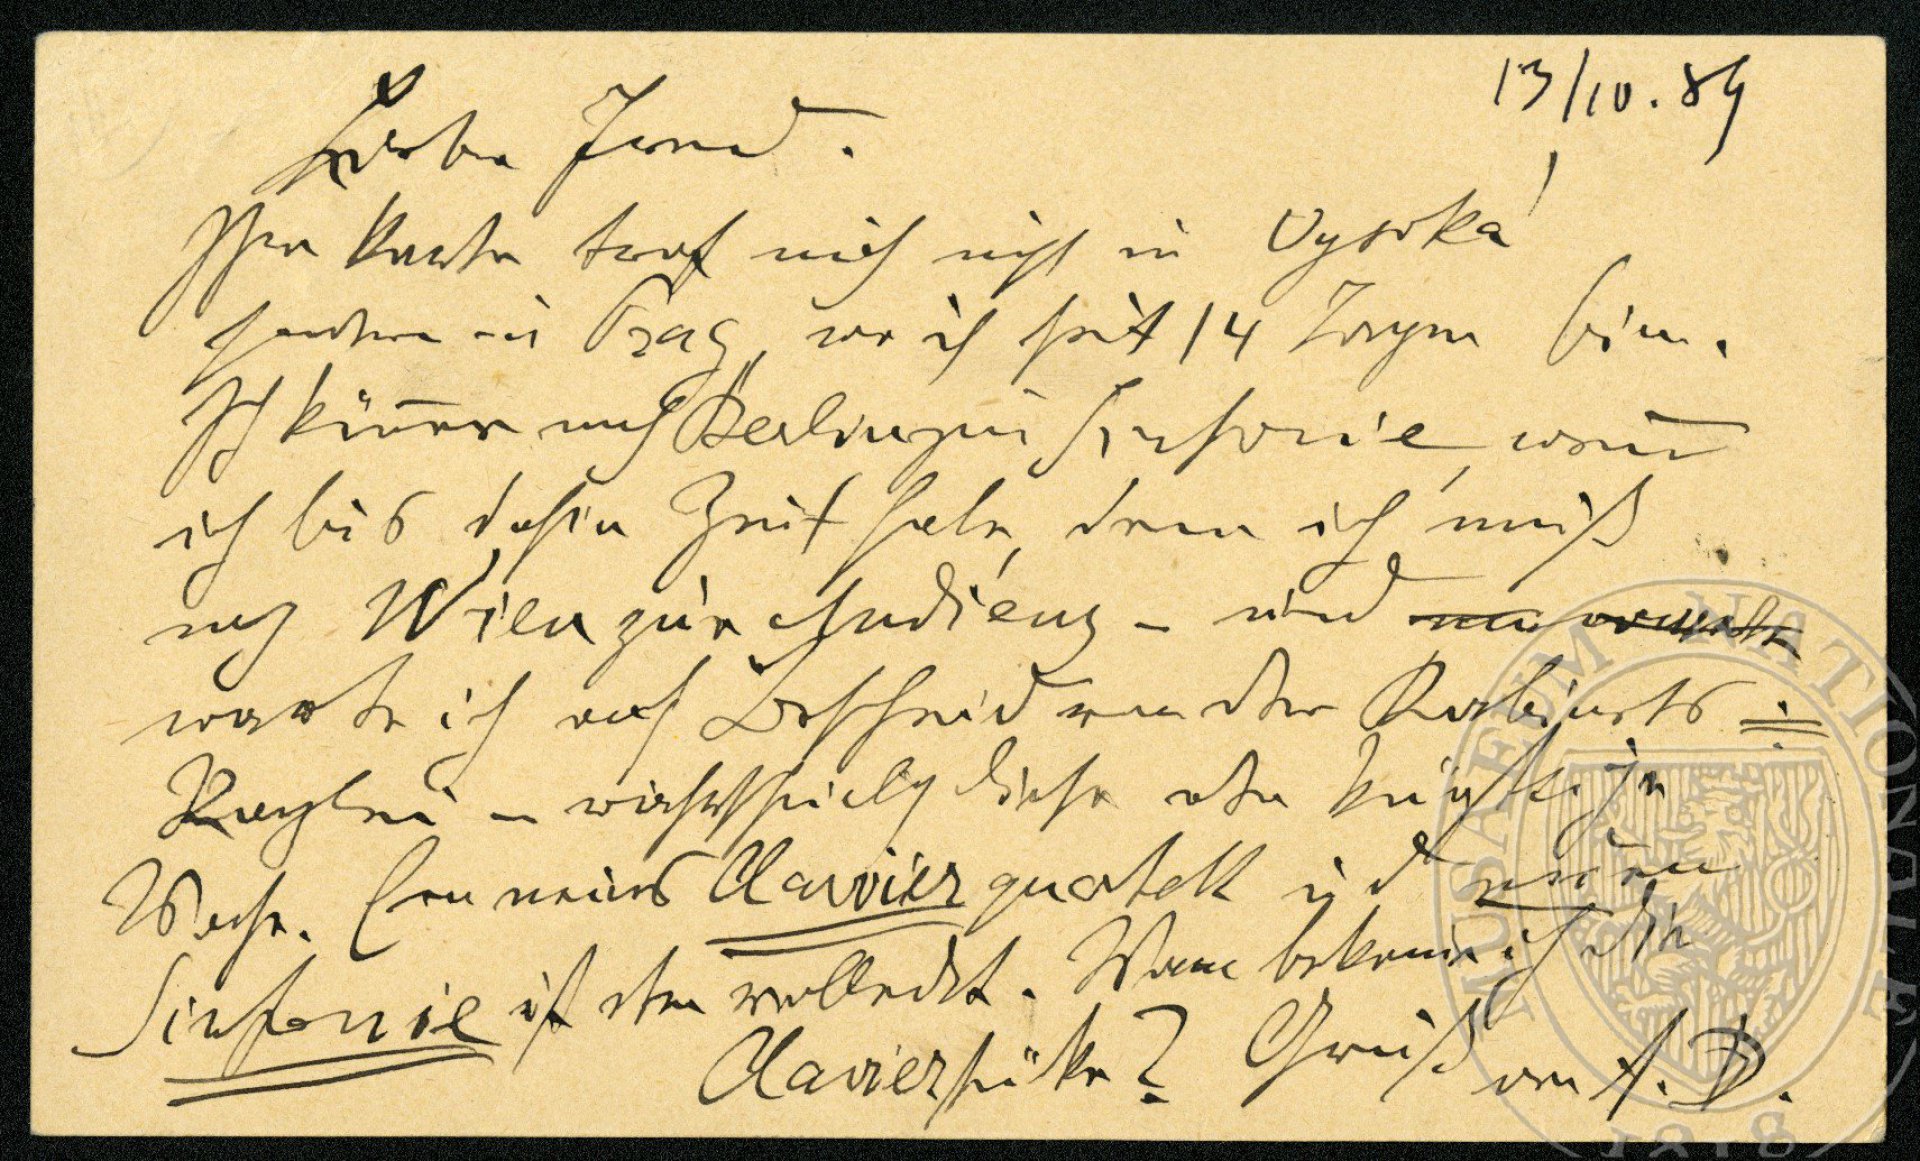 13/10.89
Lieber Freund.
Ihre Karte traf mich nicht in Vysoká
sondern in Prag, wo ich seit 14 Tagen bin.
Ich komme nach Berlin zur Sinfonie, wenn
ich bis dahin Zeit habe, denn ich muß
nach Wien zur Audienz – und
warte ich auf Bescheid von der Kabinets =
Kanzlei – wahrscheinlich diese oder künftige
Woche. Ein neues Clavierquartett und
Sinfonie ist eben vollendet. Wann bekomme ich die
Clavierstücke? Gruß von A. D.
MUSAEUM NATIONALE
1818